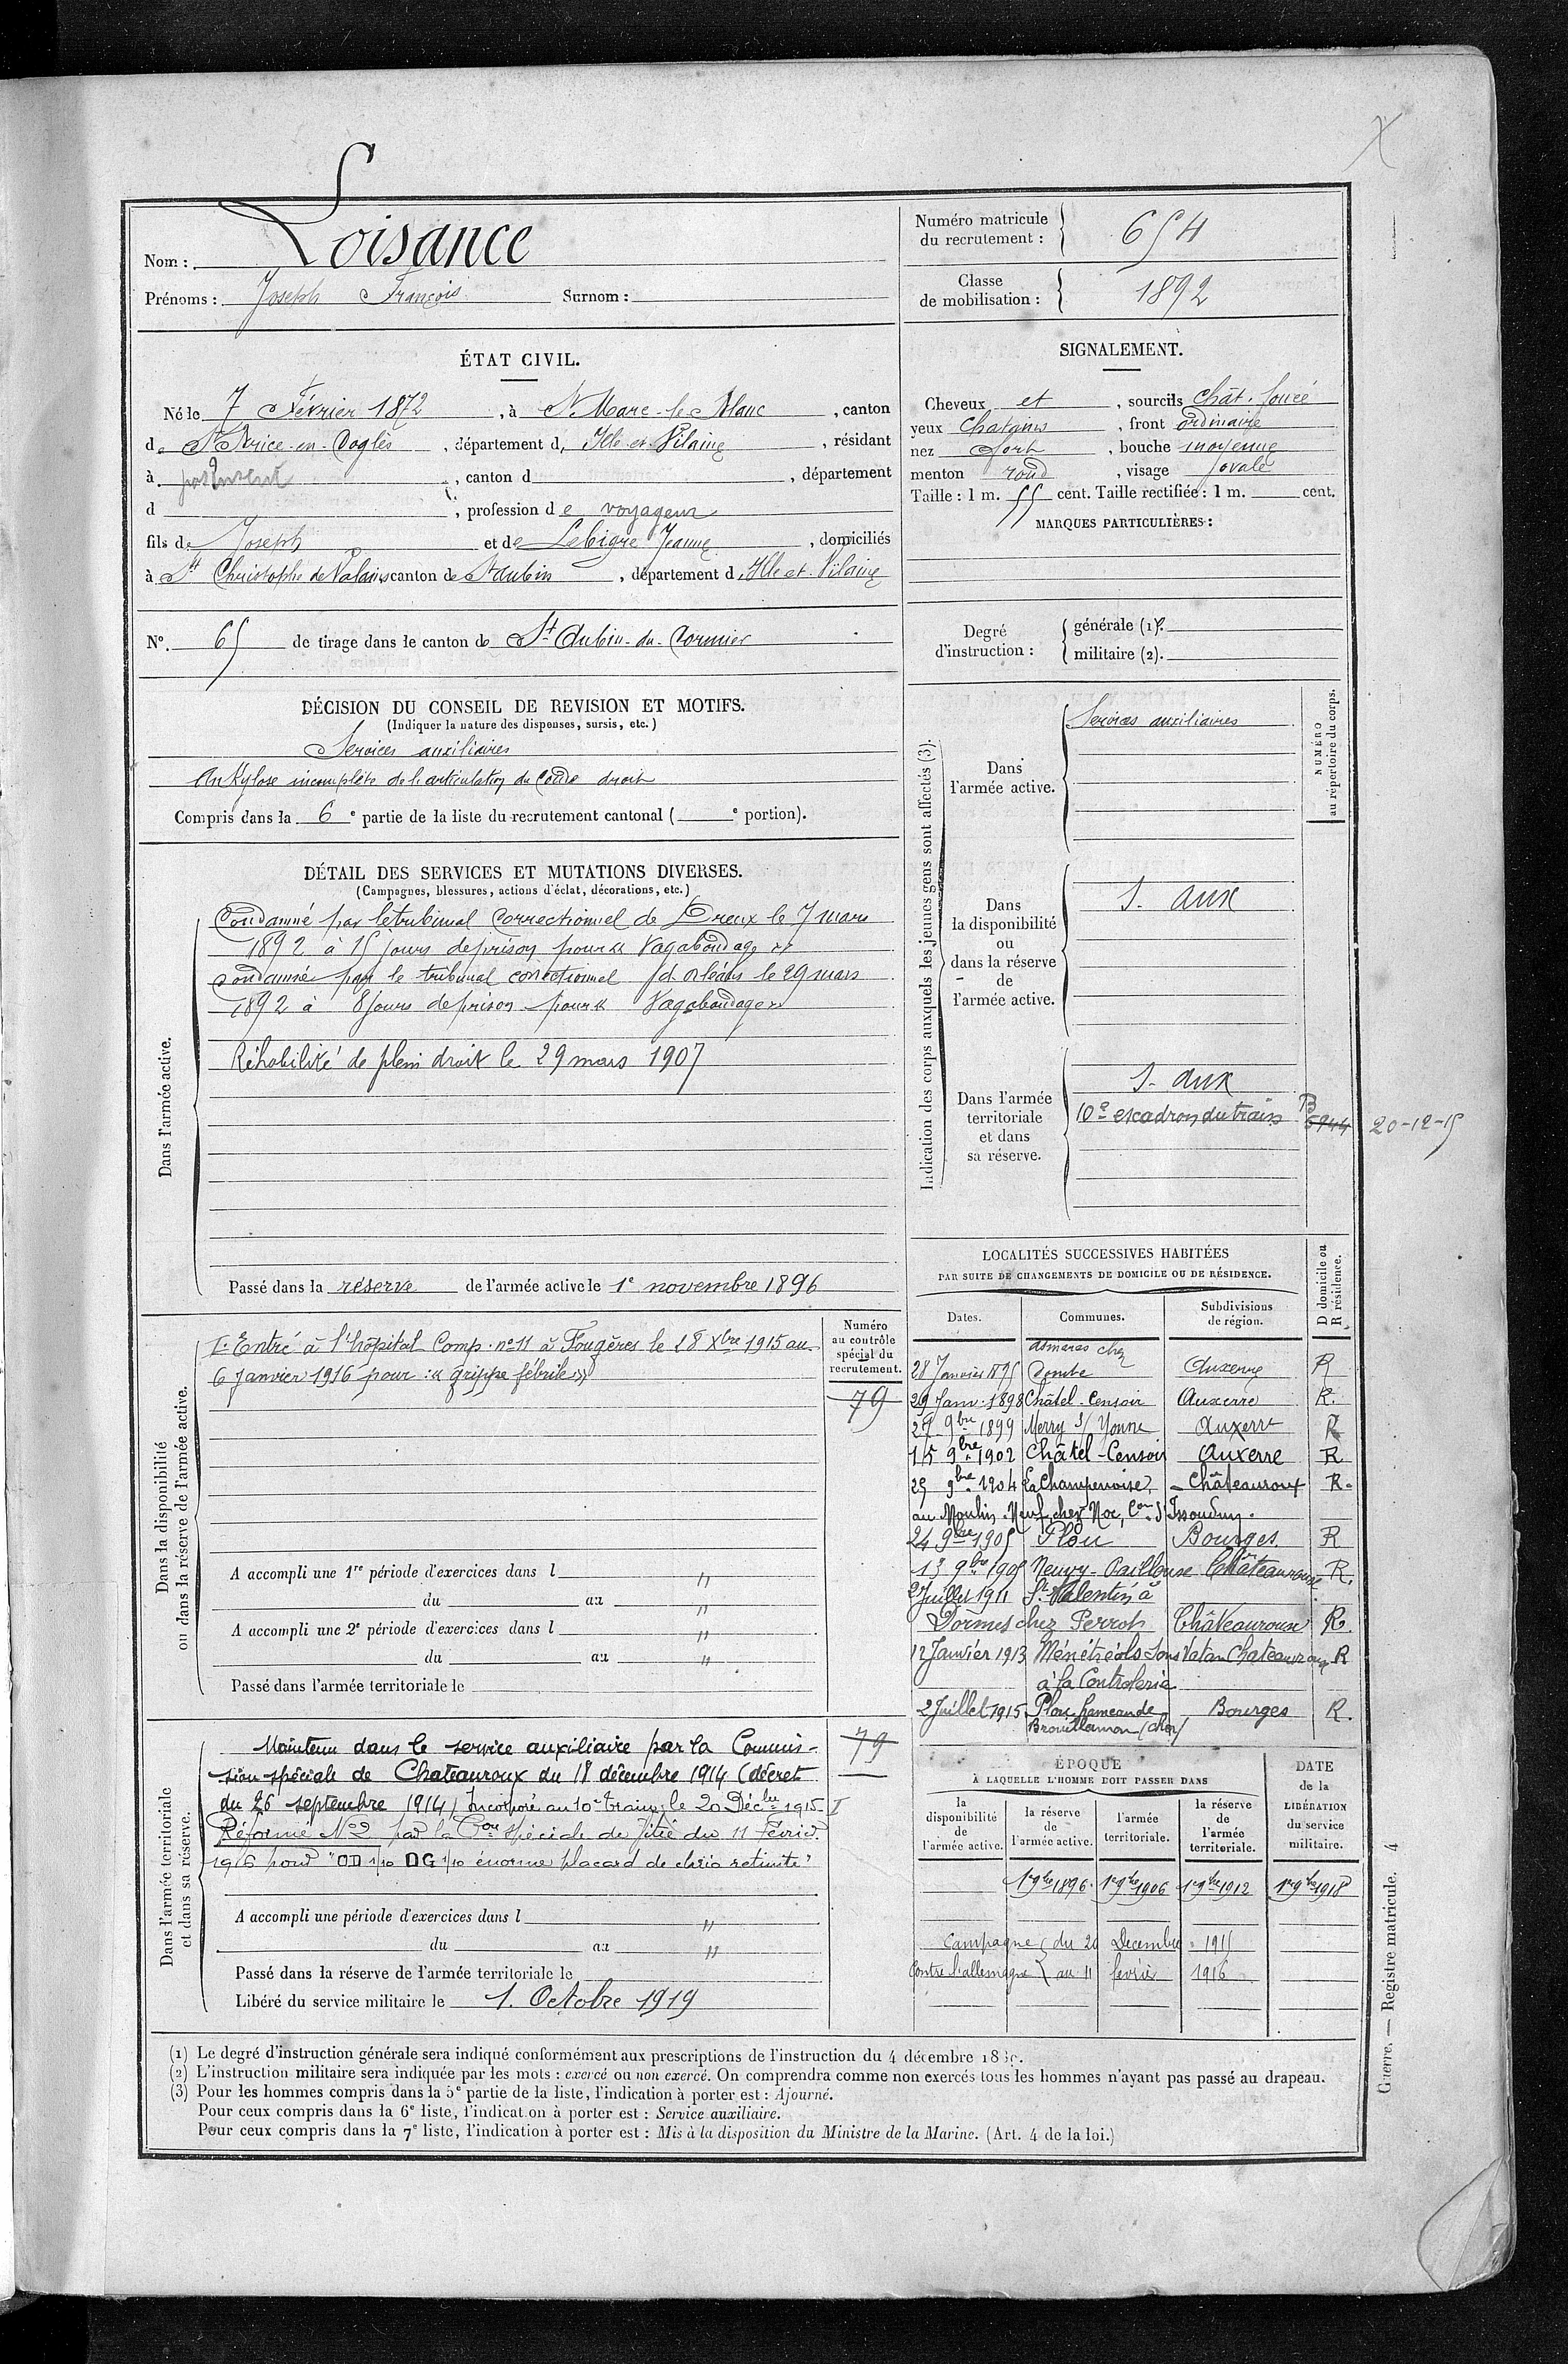 Nom : Loisance
Prénoms : Joseph François Surnom :
Numéro matricule
du recrutement : 654
Classe
de mobilisation : 1892
ÉTAT CIVIL.
Né le 7 Février 1872, à St. Marc-le-Blanc, canton
de St Brice-en-Coglès, département d, Ille-et-Vilaine, résidant
à, canton d, département
d, profession de voyageur
fils de Joseph et de Lebigre Jeanne, domiciliés
à St Christophe de Valains canton de St Aubin, département d, Ille et Vilaine
N°. 65 de tirage dans le canton de St Aubin-du-Cormier
SIGNALEMENT.
Cheveux et, sourcils chât. foncé
yeux Chatains, front ordinaire
nez fort, bouche moyenne
menton rond, visage ovale
Taille : 1 m. 55 cent. Taille rectifiée : 1 m. cent.
MARQUES PARTICULIÈRES :
Degré
d'instruction :
générale (1).
militaire (2).
DÉCISION DU CONSEIL DE REVISION ET MOTIFS.
(Indiquer la nature des dispenses, sursis, etc.)
Services auxiliaires
Ankylose incomplète de l'articulation du Coude droit
Compris dans la 6e partie de la liste du recrutement cantonal ( e portion).
DÉTAIL DES SERVICES ET MUTATIONS DIVERSES.
(Campagnes, blessures, actions d'éclat, décorations, etc.)
Dans l'armée active.
Condamné par le tribunal Correctionnel de Dreux le 7 mars
1892 à 15 jours de prison pour « Vagabondage »
condamné par le tribunal correctionnel d'Orléans le 29 mars
1892 à 8 jours de prison pour « Vagabondage »
Réhabilité de plein droit le 29 mars 1907
Passé dans la réserve de l'armée active le 1e novembre 1896
Indication des corps auxquels les jeunes gens sont affectés (3).
NUMÉRO
au répertoire du corps.
Dans
l'armée active.
Services auxiliaires
Dans
la disponibilité
ou
dans la réserve
de
l'armée active.
S. aux
Dans l'armée
territoriale
et dans
sa réserve.
S. aux
10e escadron du train B 5944 20-12-15
Dans la disponibilité
ou dans la réserve de l'armée active.
Numéro
au contrôle
spécial du
recrutement.
79
I. Entré à l'hôpital Comp. n° 11 à Fougères le 28 Xbre 1915 au
6 Janvier 1916 pour : « grippe fébrile »
A accompli une 1re période d'exercices dans l "
du au "
A accompli une 2e période d'exercices dans l "
du au "
Passé dans l'armée territoriale le
Dans l'armée territoriale
et dans sa réserve.
79
Maintenu dans le service auxiliaire par la Commis-
sion spéciale de Chateauroux du 18 décembre 1914 (décret
du 26 septembre 1914) Incorporé au 10e train le 20 Décbre 1915. I
Réformé N°2 par la Con spéciale de du 11 Février
1916 pour "OD 1/10 OG 1/10 énorme placard de chorio retinite"
A accompli une période d'exercices dans l "
du au "
Passé dans la réserve de l'armée territoriale le
Libéré du service militaire le 1. Octobre 1919
LOCALITÉS SUCCESSIVES HABITÉES
PAR SUITE DE CHANGEMENTS DE DOMICILE OU DE RÉSIDENCE.
D domicile ou
R résidence.
Dates. Communes. Subdivisions
de région.
28 Janvier 1895 Asnières chez Auxerre R
29 Janv. 1898 Châtel-Censoir Auxerre R.
27 9bre 1899 Merry s/ Yonne Auxerre R
15 9bre 1902 Châtel-Censoir Auxerre R
25 9bre 1904 La Champenoise, - Châteauroux R.
au Moulin-Neuf, chez Noc, Con d'Issoudun.
24 9bre 1905 Plou Bourges R
13 9bre 1908 Neuvy-Pailloux Châteauroux R.
2 Juillet 1911 St Valentin à
Dormes chez Perrot Châteauroux R.
12 Janvier 1913 Ménétréols Sous Vatan Chateauroux R
à la Controlerie
2 Juillet 1915 Plou hameau de Bourges R.
Brouillamnon (cher)
ÉPOQUE
À LAQUELLE L'HOMME DOIT PASSER DANS
la
disponibilité
de
l'armée active.
la réserve
de
l'armée active.
l'armée
territoriale.
la réserve
de
l'armée
territoriale.
DATE
de la
LIBÉRATION
du service
militaire.
1er 9bre 1896 1er 9bre 1906 1er 9bre 1912 1er 9bre 1918
Campagne { du 20 Decembre 1915
Contre l'allemagne { au 11 février 1916
(1) Le degré d'instruction générale sera indiqué conformément aux prescriptions de l'instruction du 4 décembre
(2) L'instruction militaire sera indiquée par les mots : exercé ou non exercé. On comprendra comme non exercés tous les hommes n'ayant pas passé au drapeau.
(3) Pour les hommes compris dans la 5e partie de la liste, l'indication à porter est : Ajourné.
Pour ceux compris dans la 6e liste, l'indication à porter est : Service auxiliaire.
Pour ceux compris dans la 7e liste, l'indication à porter est : Mis à la disposition du Ministre de la Marine. (Art. 4 de la loi.)
Guerre. — Registre matricule. 4